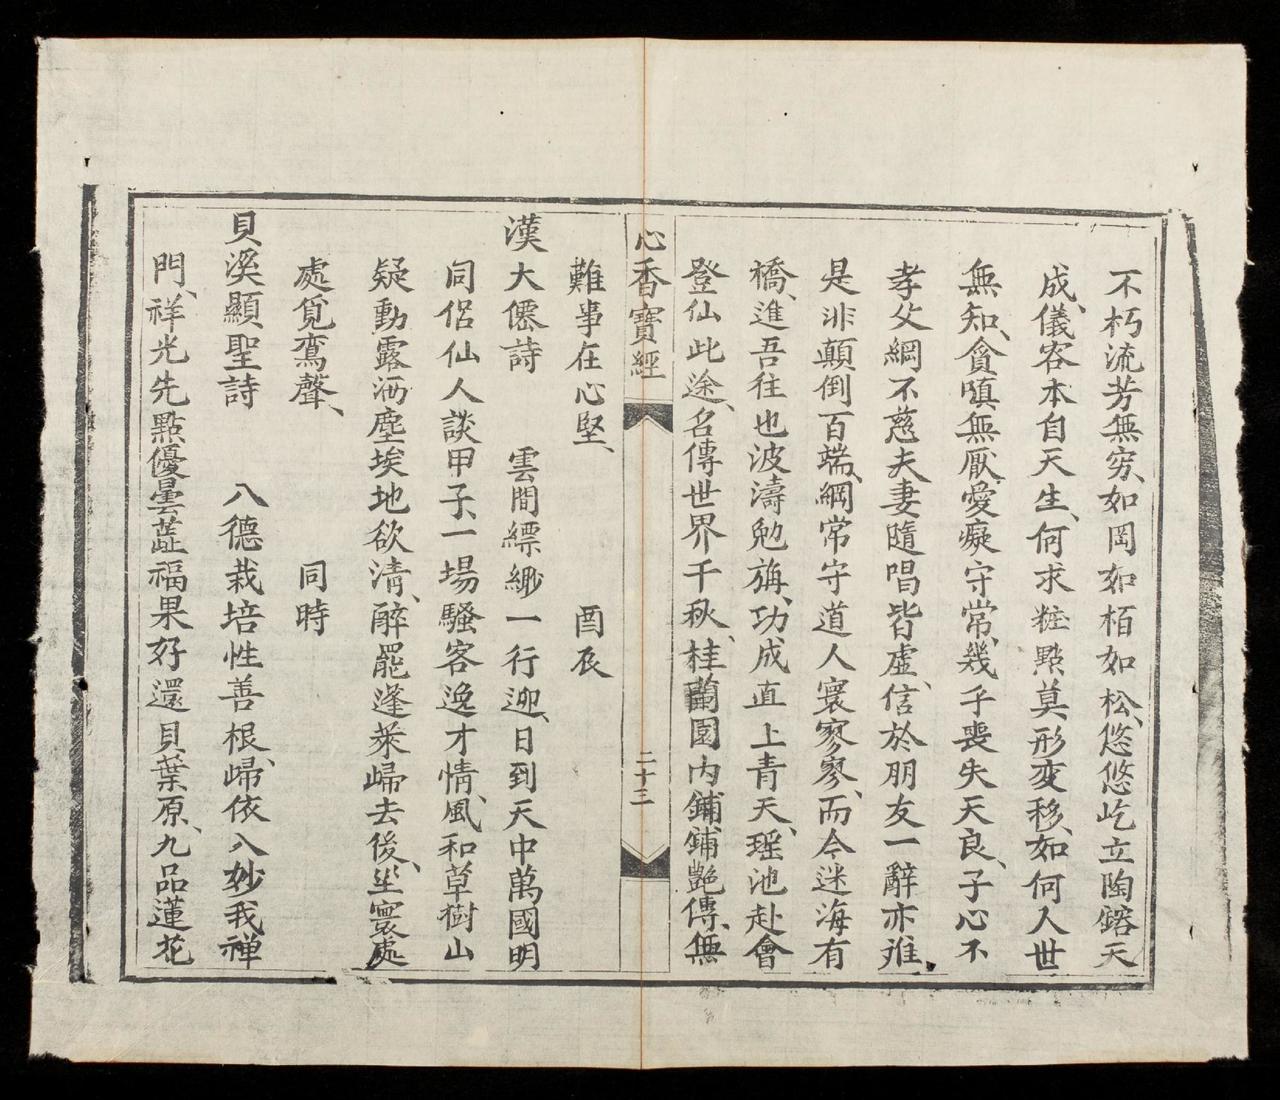 不朽流芳無穷、如岡如栢如松、悠悠屹立陶鎔天
成、儀容本自天生、何求粧點莫形変移、如何人世
無知、貪嗔無厭、愛癡守常、幾乎喪失天良、子心不
孝父綱不慈夫妻隨唱皆虛、信於朋友一辭亦难
是非顛倒百端、綱常守道人寰寥寥、而今迷海有
橋、進吾往也波濤勉旃、功成直上青天、瑶池赴會
登仙此途、名傳世界千秋、桂蘭園内鋪鋪艷傳、無
心香寶經 二十三
難事在心堅、 酉辰
漢大僊詩 雲間縹緲一行迎、日到天中萬國明
同侶仙人談甲子、一場騷客逸才情、風和草樹山
疑動露洒塵埃地欲清、醉罷逢萊歸去後、坐寰處
處覓鸞聲、 同時
貝溪顯聖詩 八德栽培性善根、歸依八妙我禅
門、祥光先點優曇蕋福果好還貝葉原、九品蓮花